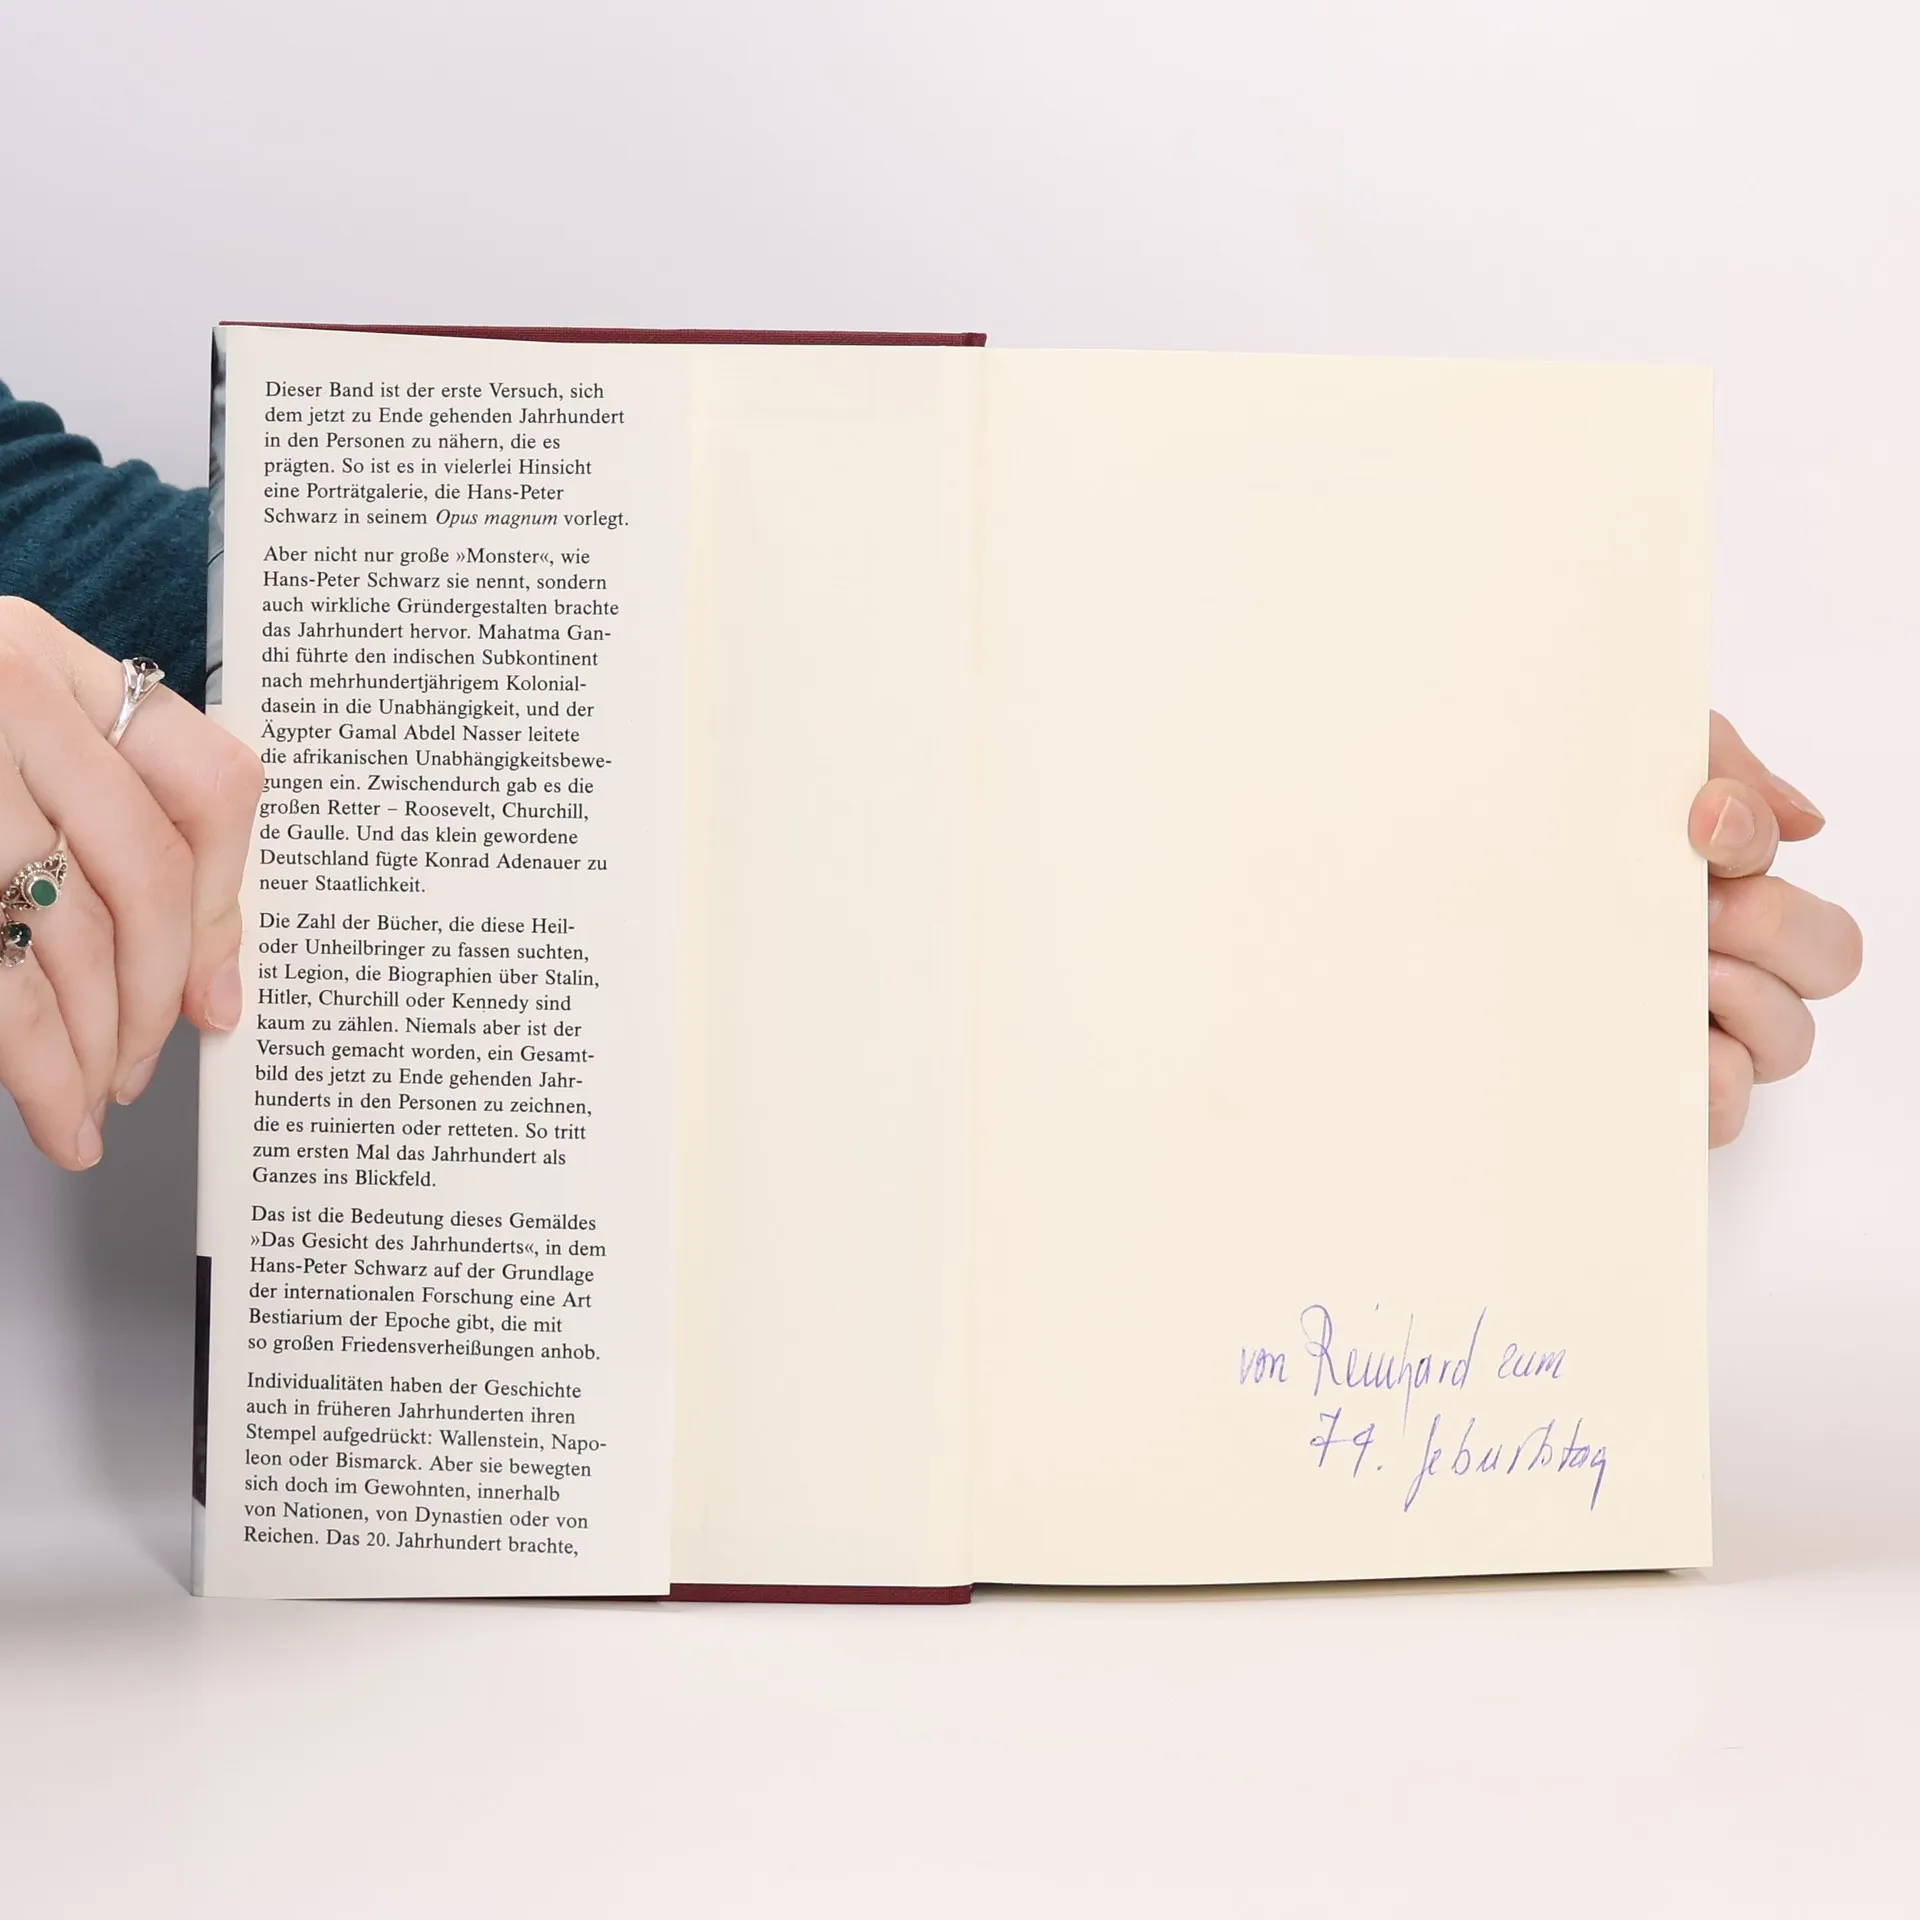 Dieser Band ist der erste Versuch, sich
dem jetzt zu Ende gehenden Jahrhundert
in den Personen zu nähern, die es
prägten. So ist es in vielerlei Hinsicht
eine Porträtgalerie, die Hans-Peter
Schwarz in seinem Opus magnum vorlegt.
Aber nicht nur große »Monster«, wie
Hans-Peter Schwarz sie nennt, sondern
auch wirkliche Gründergestalten brachte
das Jahrhundert hervor. Mahatma Gan-
dhi führte den indischen Subkontinent
nach mehrhundertjährigem Kolonial-
dasein in die Unabhängigkeit, und der
Ägypter Gamal Abdel Nasser leitete
die afrikanischen Unabhängigkeitsbewe-
gungen ein. Zwischendurch gab es die
großen Retter – Roosevelt, Churchill,
de Gaulle. Und das klein gewordene
Deutschland fügte Konrad Adenauer zu
neuer Staatlichkeit.
Die Zahl der Bücher, die diese Heil-
oder Unheilbringer zu fassen suchten,
ist Legion, die Biographien über Stalin,
Hitler, Churchill oder Kennedy sind
kaum zu zählen. Niemals aber ist der
Versuch gemacht worden, ein Gesamt-
bild des jetzt zu Ende gehenden Jahr-
hunderts in den Personen zu zeichnen,
die es ruinierten oder retteten. So tritt
zum ersten Mal das Jahrhundert als
Ganzes ins Blickfeld.
Das ist die Bedeutung dieses Gemäldes
»Das Gesicht des Jahrhunderts«, in dem
Hans-Peter Schwarz auf der Grundlage
der internationalen Forschung eine Art
Bestiarium der Epoche gibt, die mit
so großen Friedensverheißungen anhob.
Individualitäten haben der Geschichte
auch in früheren Jahrhunderten ihren
Stempel aufgedrückt: Wallenstein, Napo-
leon oder Bismarck. Aber sie bewegten
sich doch im Gewohnten, innerhalb
von Nationen, von Dynastien oder von
Reichen. Das 20. Jahrhundert brachte,
von Reinhard zum
79. Geburtstag